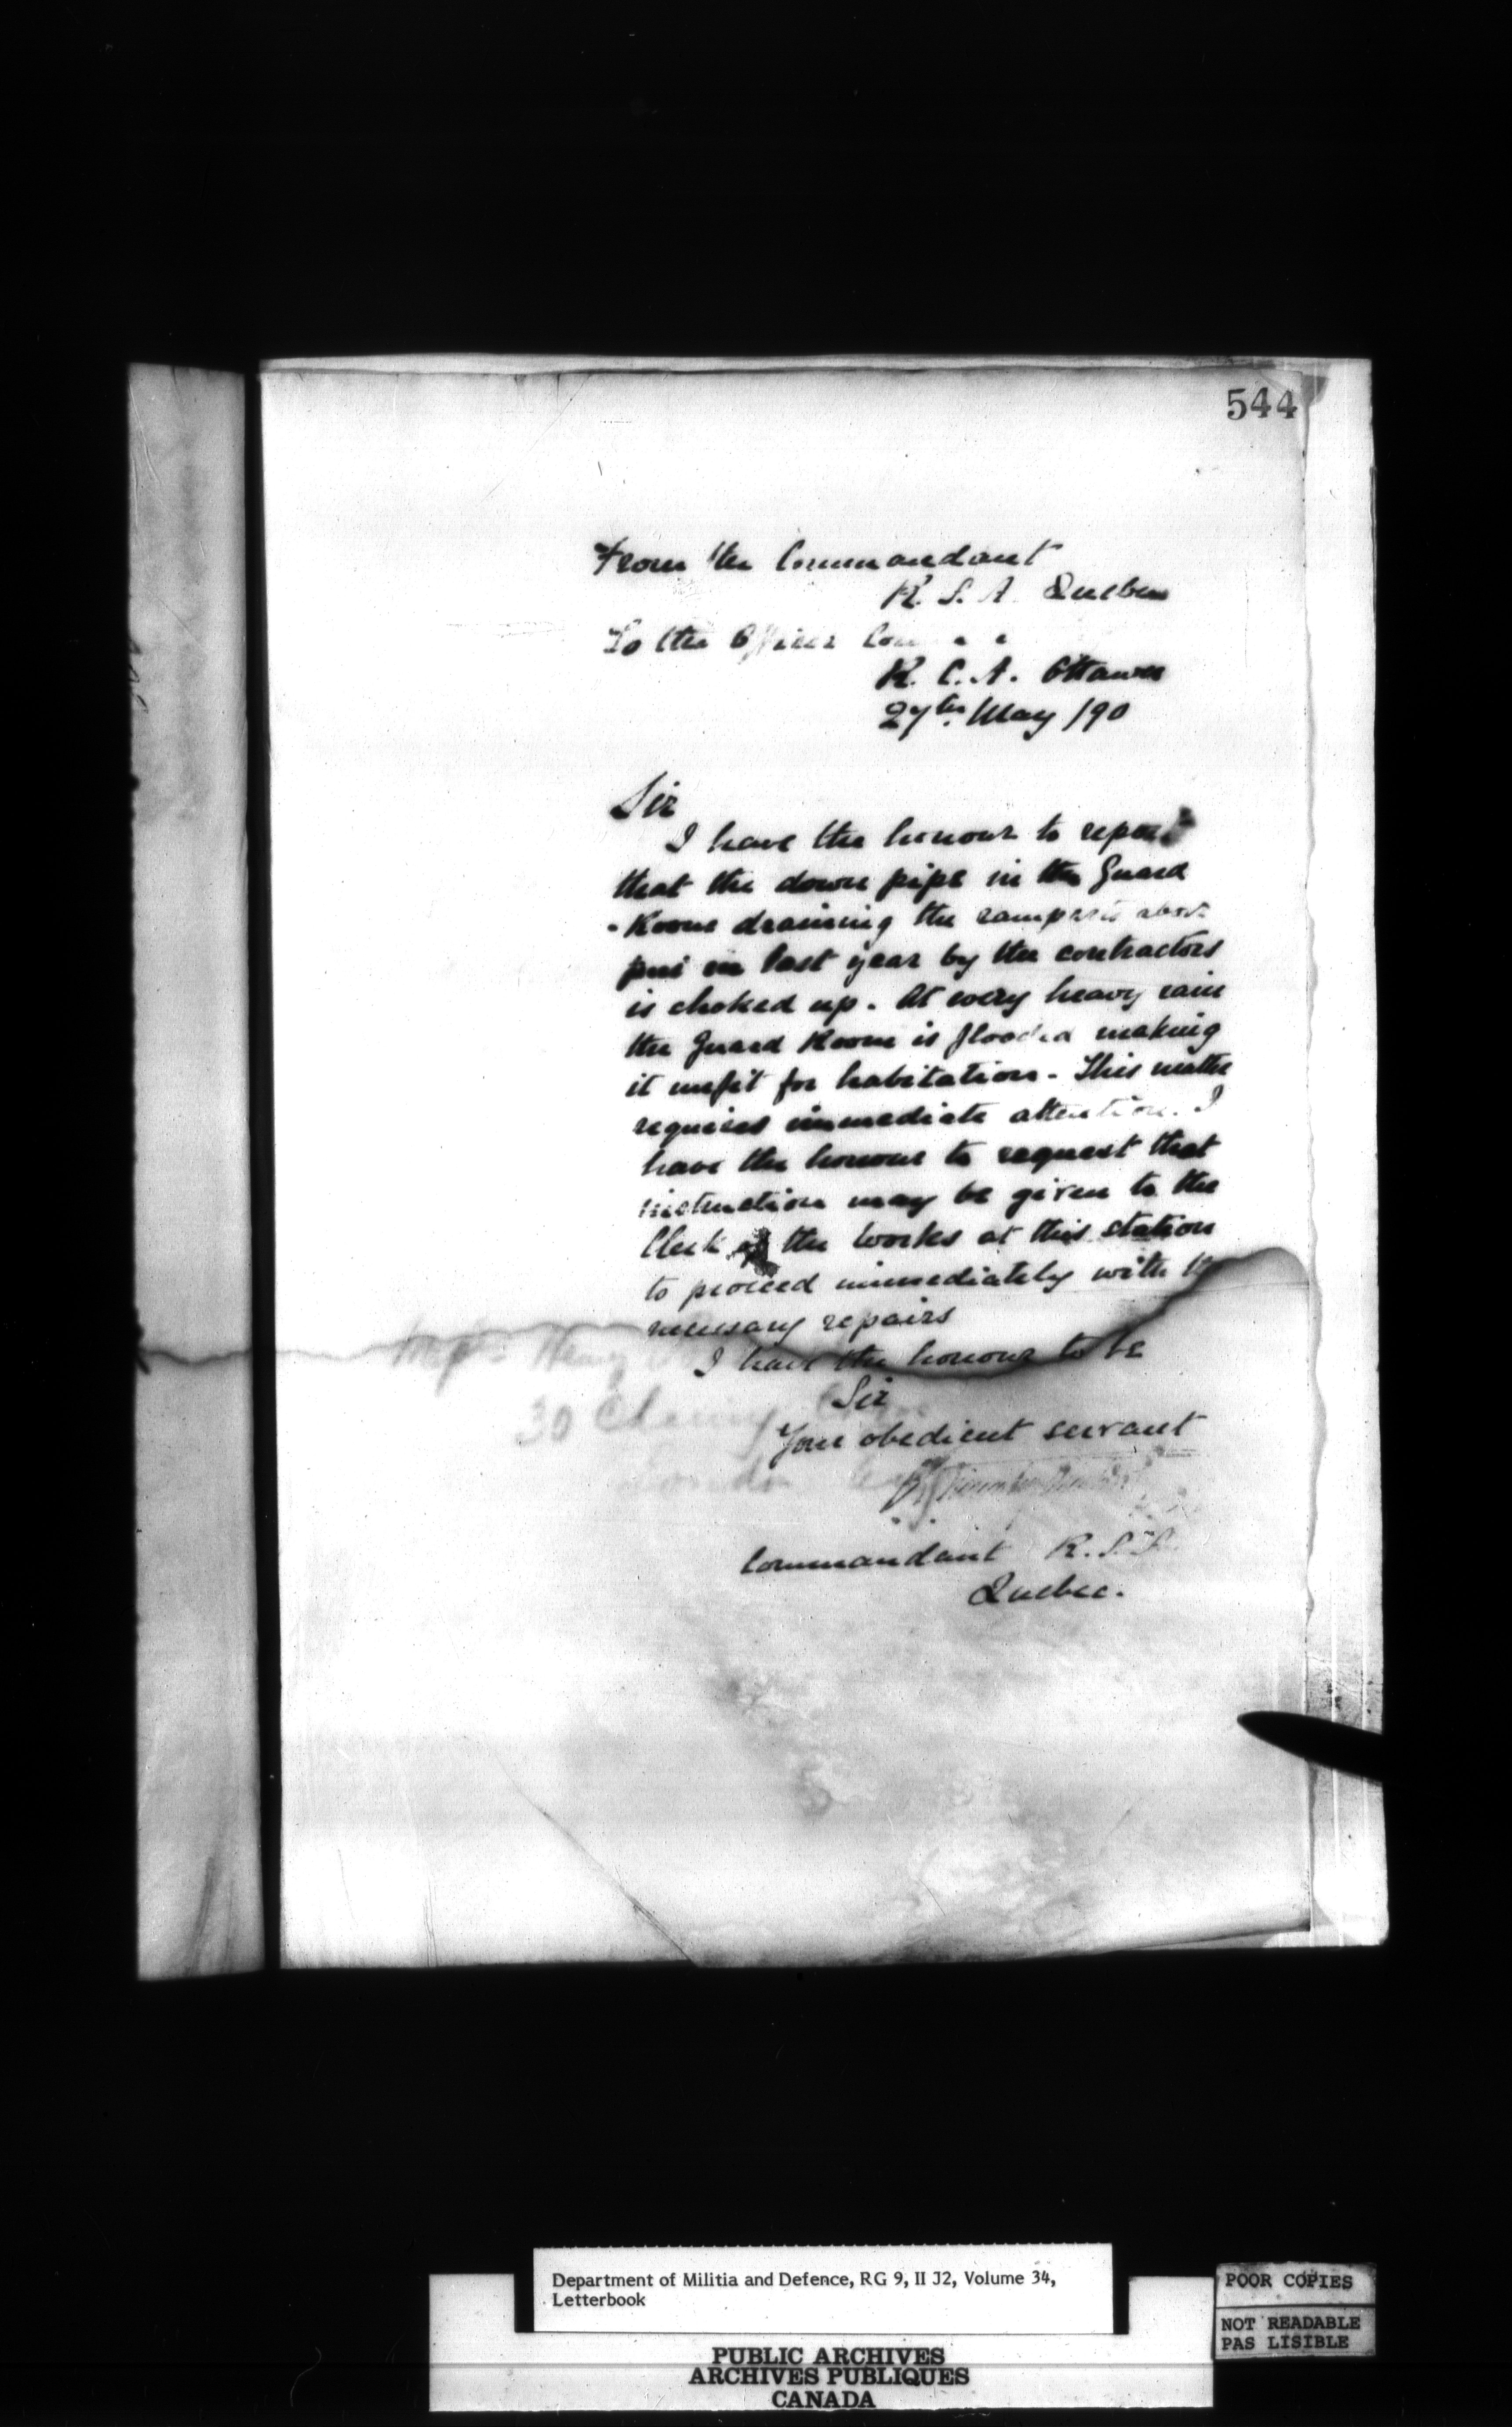 544
From the Commandant
R. S. A. Quebec
To the Officer Com
R. C. A. Ottawa
27th May /90
Sir
I have the honour to report
that the down pipe in the Guard
-Room draining the ramparts above
put in last year by the contractors
is choked up. At every heavy rain
the Guard Room is flooded making
it unfit for habitation. This matter
requires immediate attention. I
have the honour to request that
instruction may be given to the
Clerk of the Works at this station
to proceed immediately with the
necessary repairs
I have the honour to be
Sir
Your obedient servant
Commandant R. S.
Quebec.
30
Department of Militia and Defence, RG 9, II J2, Volume 34,
Letterbook
PUBLIC ARCHIVES
ARCHIVES PUBLIQUES
CANADA
POOR COPIES
NOT READABLE
PAS LISIBLE